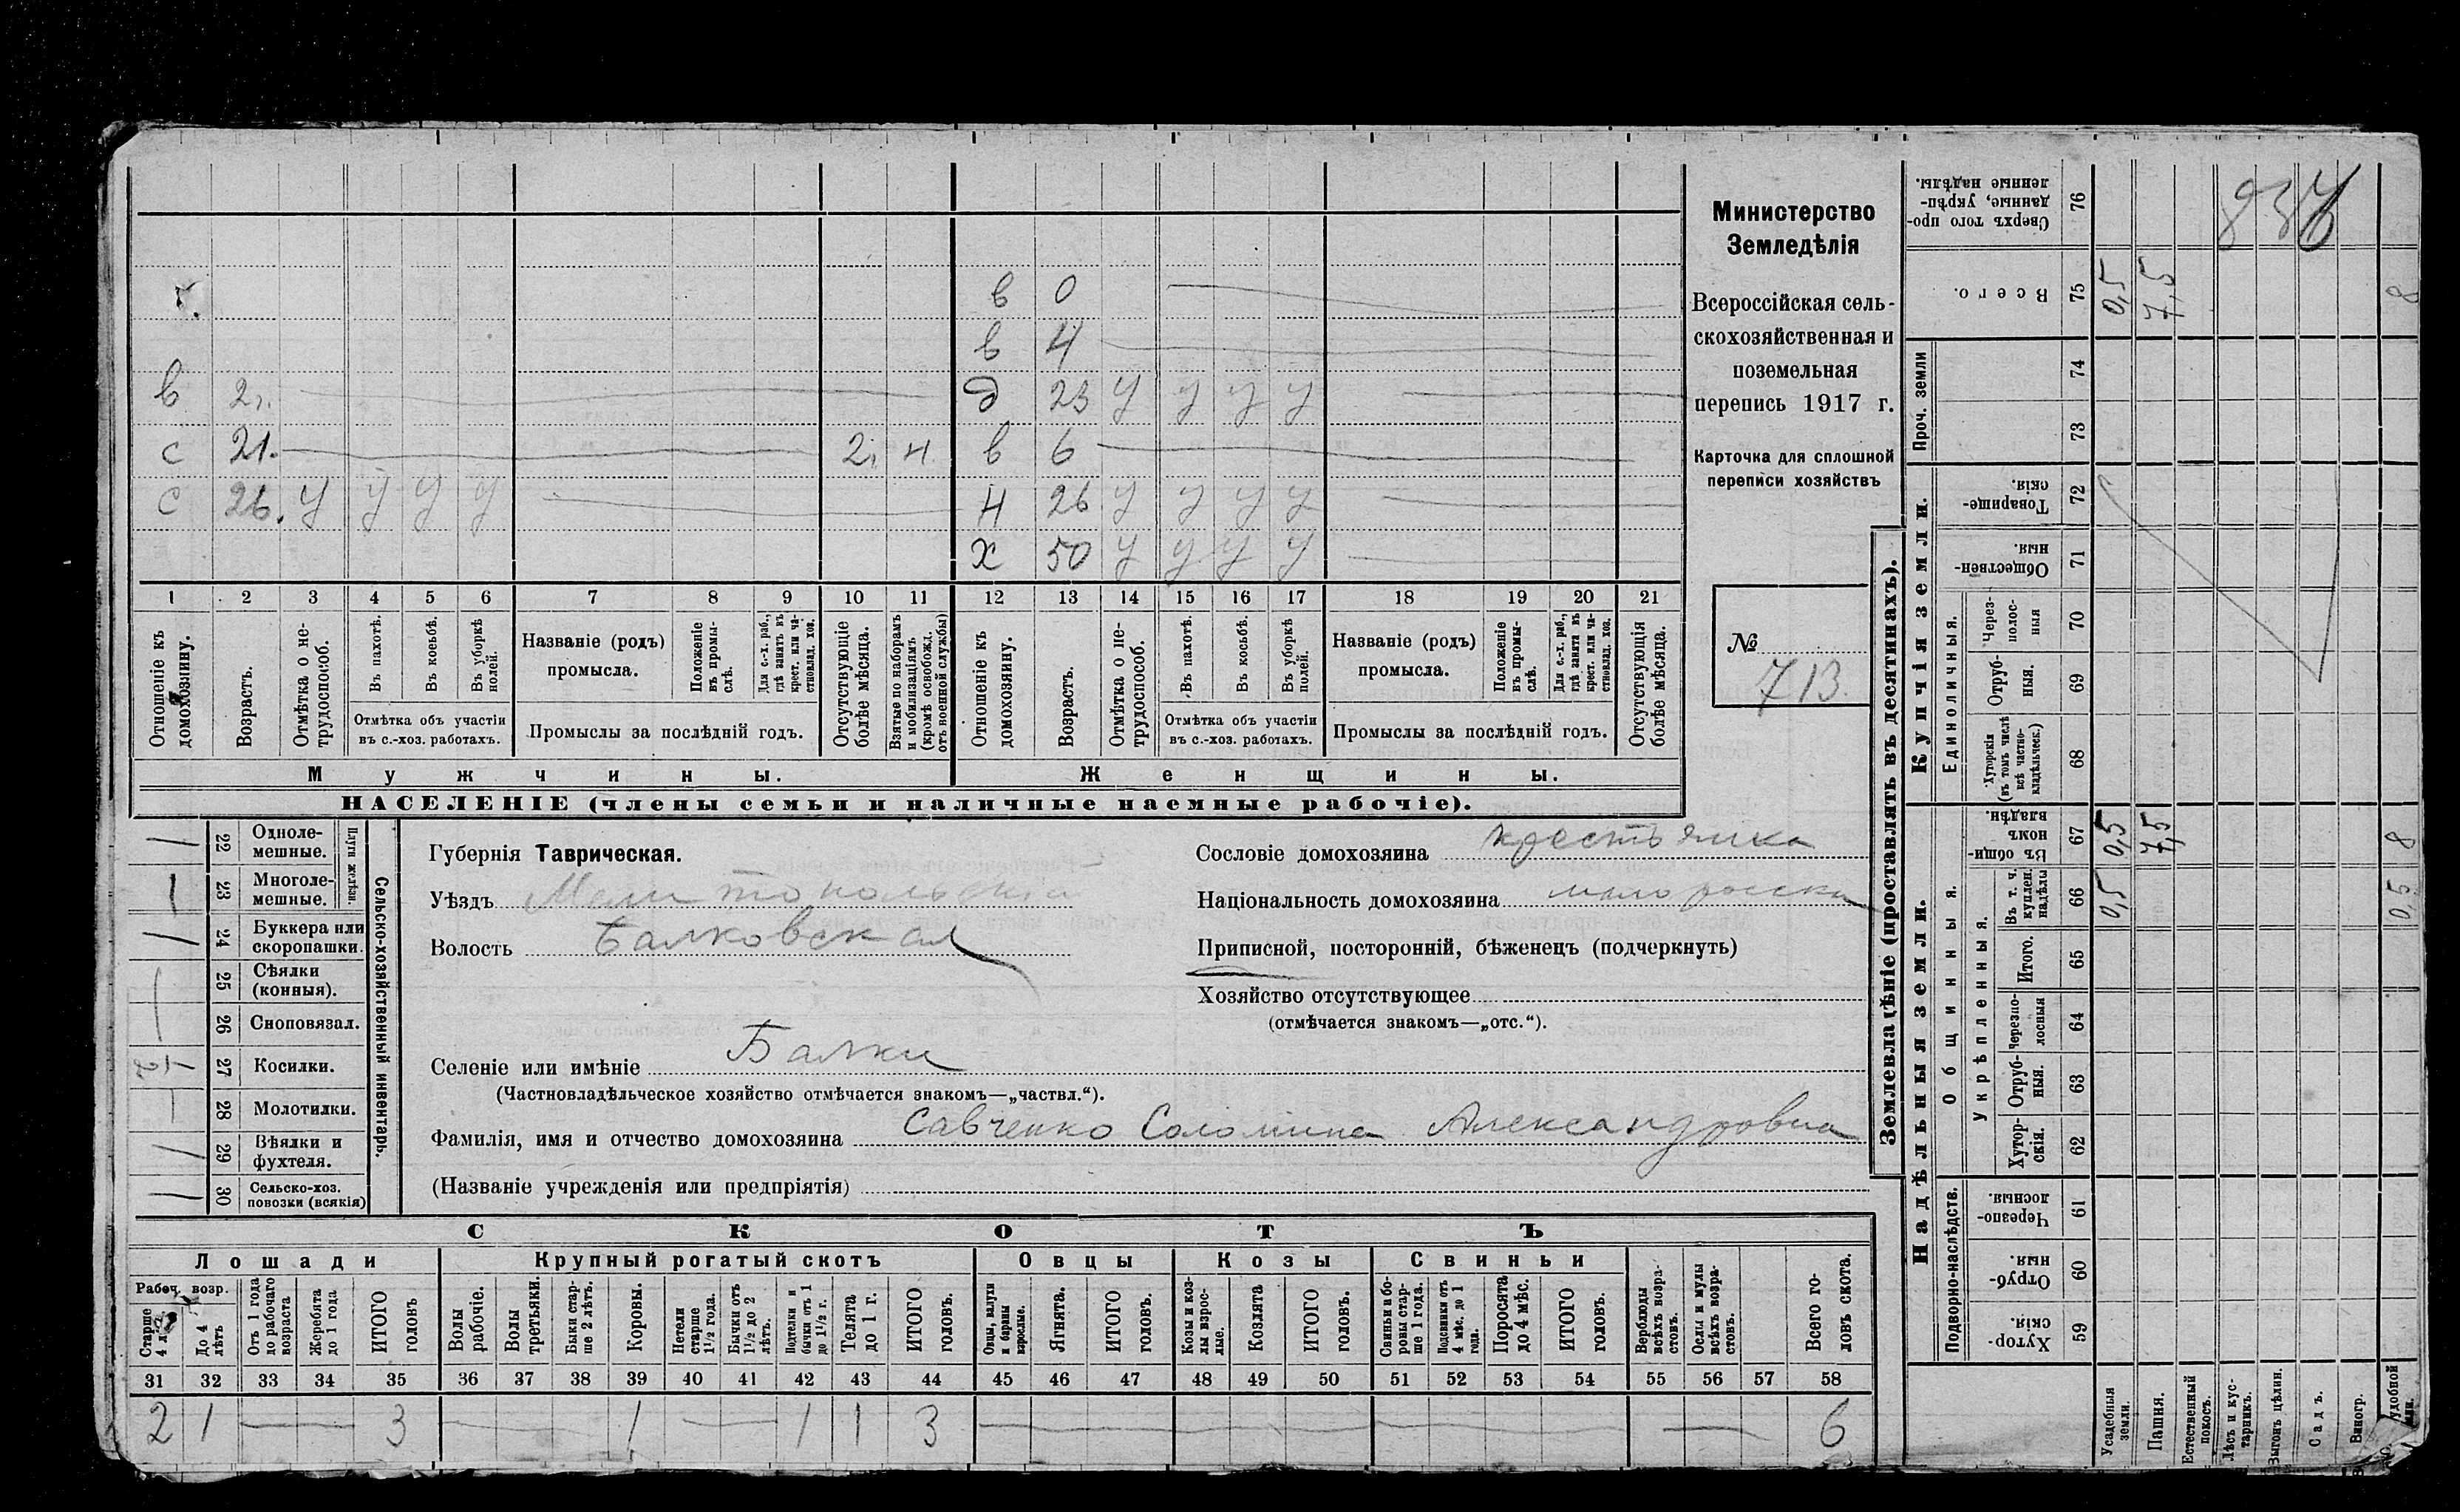 в 0
в 4
в 2. д 23 у у у у
с 21. 2, н в 6
с 26. у у у у н 26 у у у у
х 50 у у у у
1 2 3 4 5 6 7 8 9 10 11 12 13 14 15 16 17 18 19 20 21
Отношеніе къ домохозяину.
Возрастъ.
Отмѣтка о не-трудоспособ.
Въ пахотѣ.
Въ косьбѣ.
Въ уборкѣ полей.
Отмѣтка объ участіи въ с.-хоз. работахъ.
Названіе (родъ) промысла.
Положеніе въ промы-слѣ.
Для с.-х. раб., гдѣ занятъ въ крест. или ча-стновлад. хоз.
Промыслы за послѣдній годъ.
Отсутствующіе болѣе мѣсяца.
Взятые по наборамъ и мобилизаціямъ (кромѣ освобожд. отъ военной службы)
Отношеніе къ домохозяину.
Возрастъ.
Отмѣтка о не-трудоспособ.
Въ пахотѣ.
Въ косьбѣ.
Въ уборкѣ полей.
Отмѣтка объ участіи въ с.-хоз. работахъ.
Названіе (родъ) промысла.
Положеніе въ промы-слѣ.
Для с.-х. раб., гдѣ занята въ крест. или ча-стновлад. хоз.
Промыслы за послѣдній годъ.
Отсутствующія болѣе мѣсяца.
Мужчины. Женщины.
НАСЕЛЕНІЕ (члены семьи и наличные наемные рабочіе).
Министерство
Земледѣлія
Всероссійская сель-
скохозяйственная и
поземельная
перепись 1917 г.
Карточка для сплошной
переписи хозяйствъ
№
713.
22 Одноле-мешные.
23 Многоле-мешные.
Плуги желѣзн.
24 Буккера или скоропашки.
25 Сѣялки (конныя).
26 Сноповязал.
27 Косилки.
28 Молотилки.
29 Вѣялки и фухтеля.
30 Сельско-хоз. повозки (всякія)
Сельско-хозяйственный инвентарь.
Губернія Таврическая.
Уѣздъ Мелитопольскій
Волость Балковская
Селеніе или имѣніе Балки
(Частновладѣльческое хозяйство отмѣчается знакомъ—„частвл.“).
Сословіе домохозяина крестьянка
Національность домохозяина малоросска
Приписной, посторонній, бѣженецъ (подчеркнуть)
Хозяйство отсутствующее
(отмѣчается знакомъ—„отс.“).
Фамилія, имя и отчество домохозяина Савченко Соломина Александровна
(Названіе учрежденія или предпріятія)
СКОТЪ
Лошади Крупный рогатый скотъ Овцы Козы Свиньи
Рабоч. возр.
Старше 4 л.
До 4 лѣтъ
Отъ 1 года до рабочаго возраста
Жеребята до 1 года
ИТОГО головъ
Волы рабочіе.
Волы третьяки.
Быки стар-ше 2 лѣтъ.
Коровы.
Нетели старше 1½ года.
Бычки отъ 1½ до 2 лѣтъ.
Подтелки и бычки отъ 1 до 1½ г.
Телята до 1 г.
ИТОГО головъ.
Овцы, валухи и бараны взрослые.
Ягнята.
ИТОГО головъ.
Козы и коз-лы взрос-лые.
Козлята
ИТОГО головъ.
Свиньи и бо-ровы стар-ше 1 года.
Подсвинки отъ 4 мѣс. до 1 года.
Поросята до 4 мѣс.
ИТОГО головъ.
Верблюды всѣхъ возра-стовъ.
Ослы и мулы всѣхъ возра-стовъ.
Всего го-ловъ скота.
31 32 33 34 35 36 37 38 39 40 41 42 43 44 45 46 47 48 49 50 51 52 53 54 55 56 57 58
2 1 3 1 1 1 3 6
Землевладѣніе (проставлять въ десятинахъ).
Надѣльныя земли. Купчія земли. Проч. земли
Подворно-наслѣдств.
Общинныя.
Укрѣпленныя.
Единоличныя.
76 Сверхъ того про-данные, укрѣп-ленные надѣлы.
75 Всего. 0,5 7,5 8
74
73
72 Товарище-скія.
71 Обществен-ныя.
70 Через-полос-ныя
69 Отруб-ныя.
68 Хуторскія (въ томъ числѣ всѣ частно-владѣльческ.)
67 Въ общи-номъ владѣн. 0,5 7,5 8
66 Въ т. ч. куплен. надѣлы 0,5 0,5
65 Итого.
64 Черезпо-лосныя
63 Отруб-ныя.
62 Хутор-скія.
61 Черезпо-лосныя.
60 Отруб-ныя.
59 Хутор-скія.
Усадебныя земли.
Пашня.
Естественный покосъ.
Лѣсъ и кус-тарникъ.
Выгонъ цѣлин.
Садъ.
Виногр.
удобной